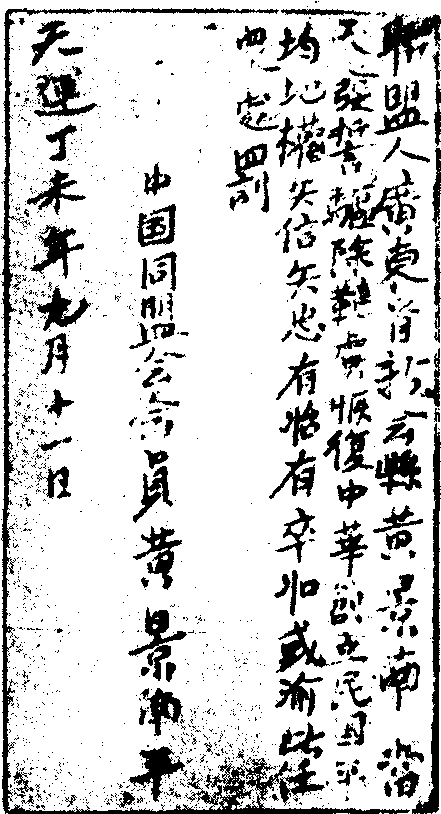 聯盟人廣東省新会縣黄景南當
天發誓驅除韃虜恢復中華創立民国平
均地權矢信矢忠有始有卒如或渝此任
眾處罰
中国同盟会会員黄景南平
天運丁未年九月十一日